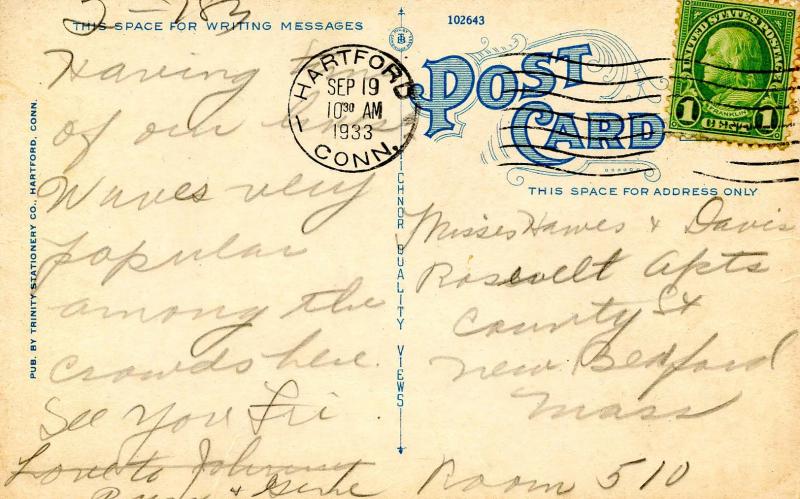 2-183
THIS SPACE FOR WRITING MESSAGES
102643
Having time
of our lives
Waves very
popular
among the
crowds here.
See you Fri
Love to Johnny
& Gene
PUB. BY TRINITY STATIONERY CO., HARTFORD, CONN.
HARTFORD
SEP 19
10 30 AM
1933
CONN.
TICHNOR QUALITY VIEWS
POST CARD
THIS SPACE FOR ADDRESS ONLY
UNITED STATES POSTAGE
FRANKLIN
1 1
Misses Hawes & Davis
Rosevelt Apts
County St
New Bedford
Mass
Room 510